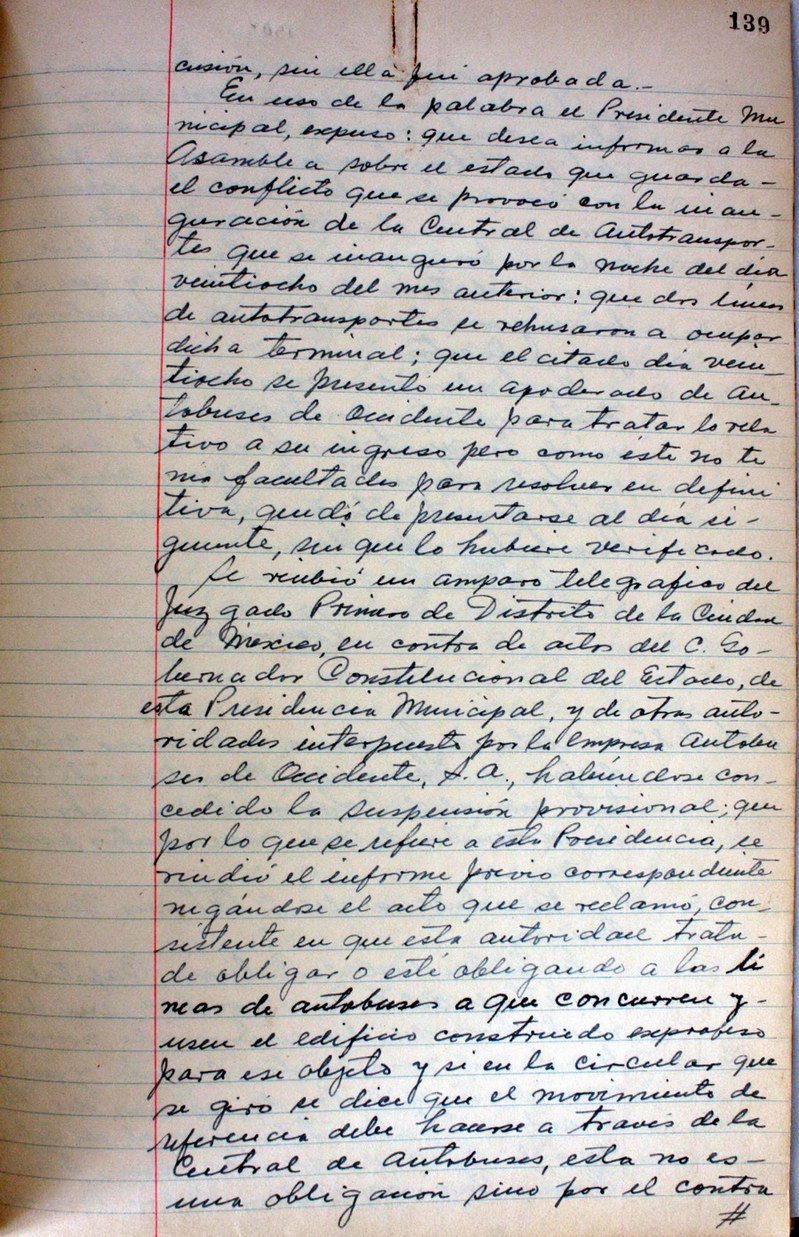 139
cusión, sin ella fué aprobada.-
En uso de la palabra el Presidente Mu
nicipal, expuso: que desea informar a la
Asamblea sobre el estado que guarda-
el conflicto que se provocó con la inau-
guración de la Central de Autotranspor-
tes que se inauguró por la noche del día
veintiocho del mes anterior: que dos lineas
de autotransportes se rehusaron a ocupar
dicha terminal; que el citado día vein-
tiocho se presentó un apoderado de Au-
tobuses de Occidente para tratar lo rela
tivo a su ingreso pero como éste no te
nía facultades para resolver en defini
tiva, quedó de presentarse al día si-
guiente, sin que lo hubiere verificado.
Se recibió un amparo telegrafico del
Juzgado Primero de Distrito de la Ciudad
de México, en contra de actos del C. Go-
bernador Constitucional del Estado, de
esta Presidencia Municipal, y de otras auto-
ridades interpuesto por la Empresa Autobu
ses de Occidente, S.A., habiendose con-
cedido la suspensión provisional; que
por lo que se refiere a esta Presidencia, se
rindió el informe previo correspondiente
negándose el acto que se reclamó, con-
sistente en que esta autoridad trata-
de obligar o esté obligando a las lí
neas de autobuses a que concurren y-
usen el edificio construido exprofeso
para ese objeto y si en la circular que
se giró se dice que el movimiento de
referencia debe hacerse a través de la
Central de Autobuses, esta no es-
una obligación sino por el contra
#